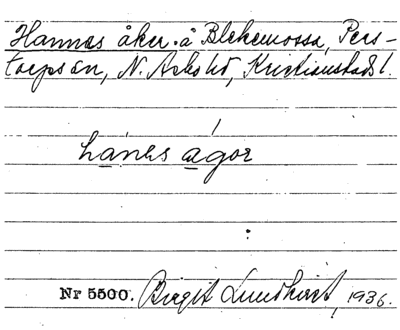 Hannas åker. å Blekemossa, Pers-
torps sn, N. Åsbo hd, Kristianstads l.
hanɛs agɔr
Nr 5500. Birgit Lundkvist, 1936.